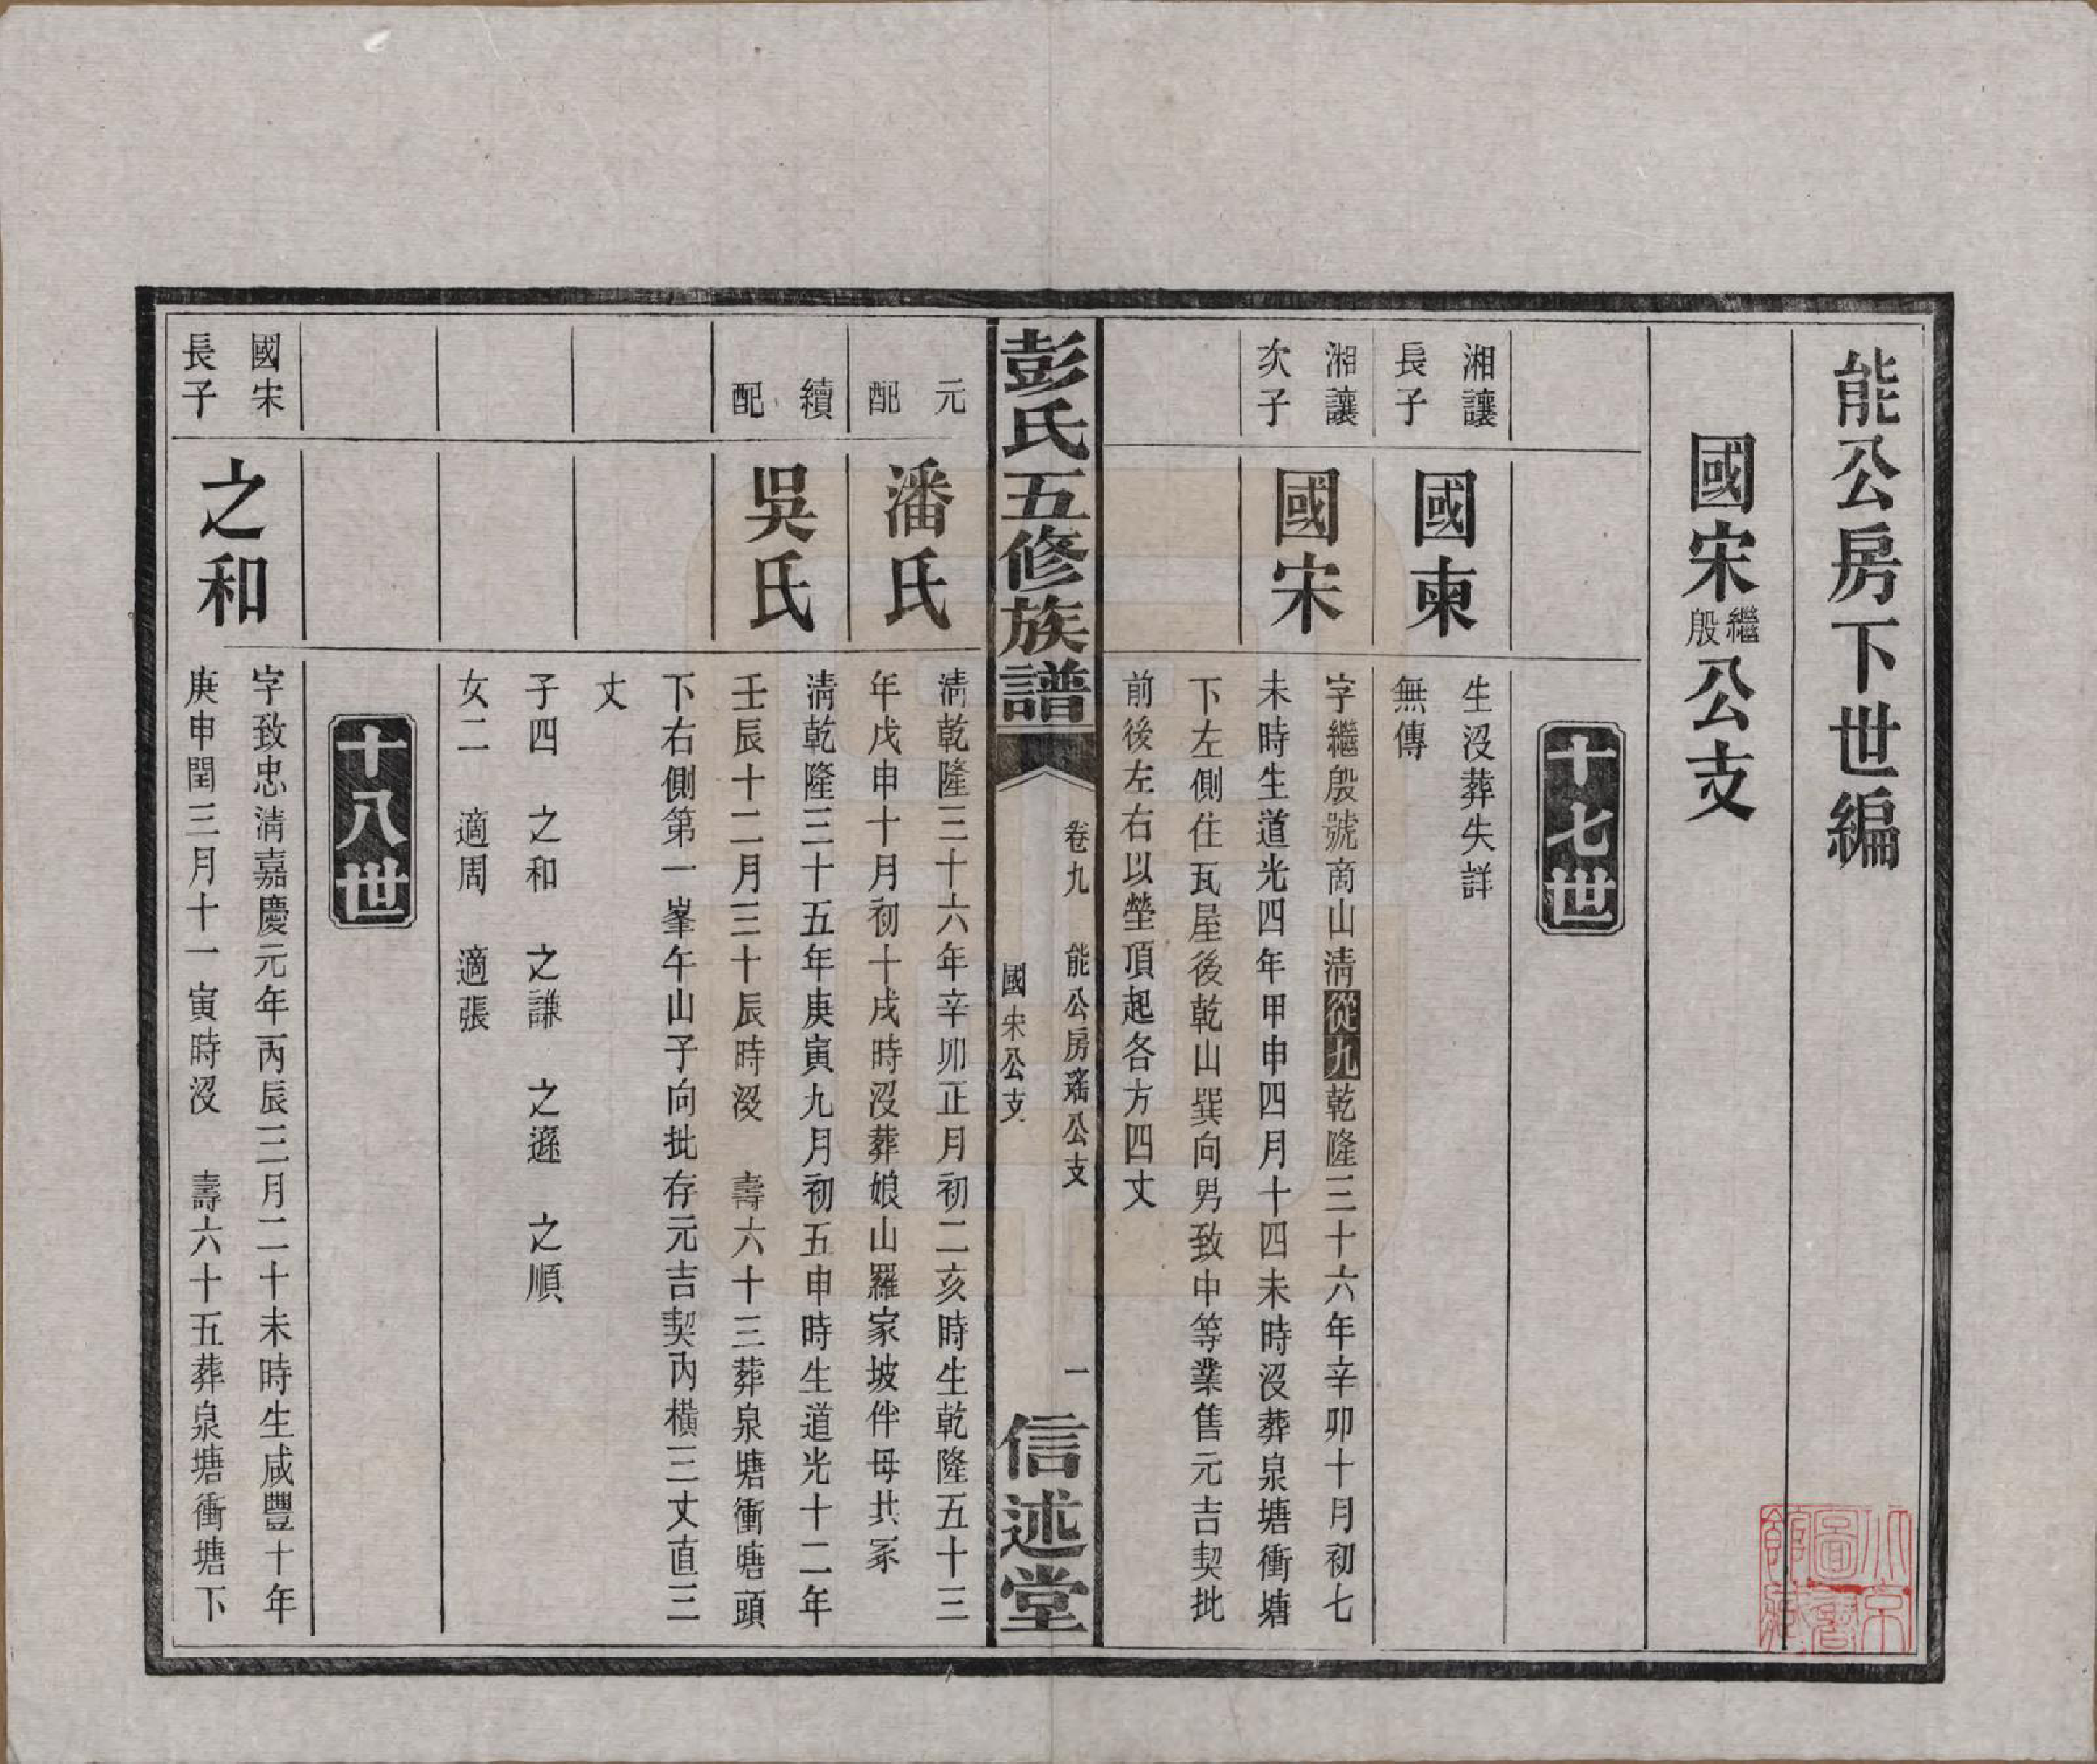 能公房下世編
國宋繼殷公支
十七世
湘讓長子
國柬
生沒葬失詳
無傳
湘讓次子
國宋
字繼殷號商山清從九乾隆三十六年辛卯十月初七
未時生道光四年甲申四月十四未時沒葬泉塘衝塘
下左側住瓦屋後乾山巽向男致中等業售元吉契批
前後左右以塋頂起各方四丈
彭氏五修族譜
卷九 能公房瑤公支
國宋公支
一
信述堂
元配
潘氏
清乾隆三十六年辛卯正月初二亥時生乾隆五十三
年戊申十月初十戌時沒葬娘山羅家坡伴母共冢
續配
吳氏
清乾隆三十五年庚寅九月初五申時生道光十二年
壬辰十二月三十辰時沒 壽六十三葬泉塘衝塘頭
下右側第一峯午山子向批存元吉契內橫三丈直三
丈
子四 之和 之謙 之遜 之順
女二 適周 適張
十八世
國宋長子
之和
字致忠清嘉慶元年丙辰三月二十未時生咸豐十年
庚申閏三月十一寅時沒 壽六十五葬泉塘衝塘下
北京圖書館藏